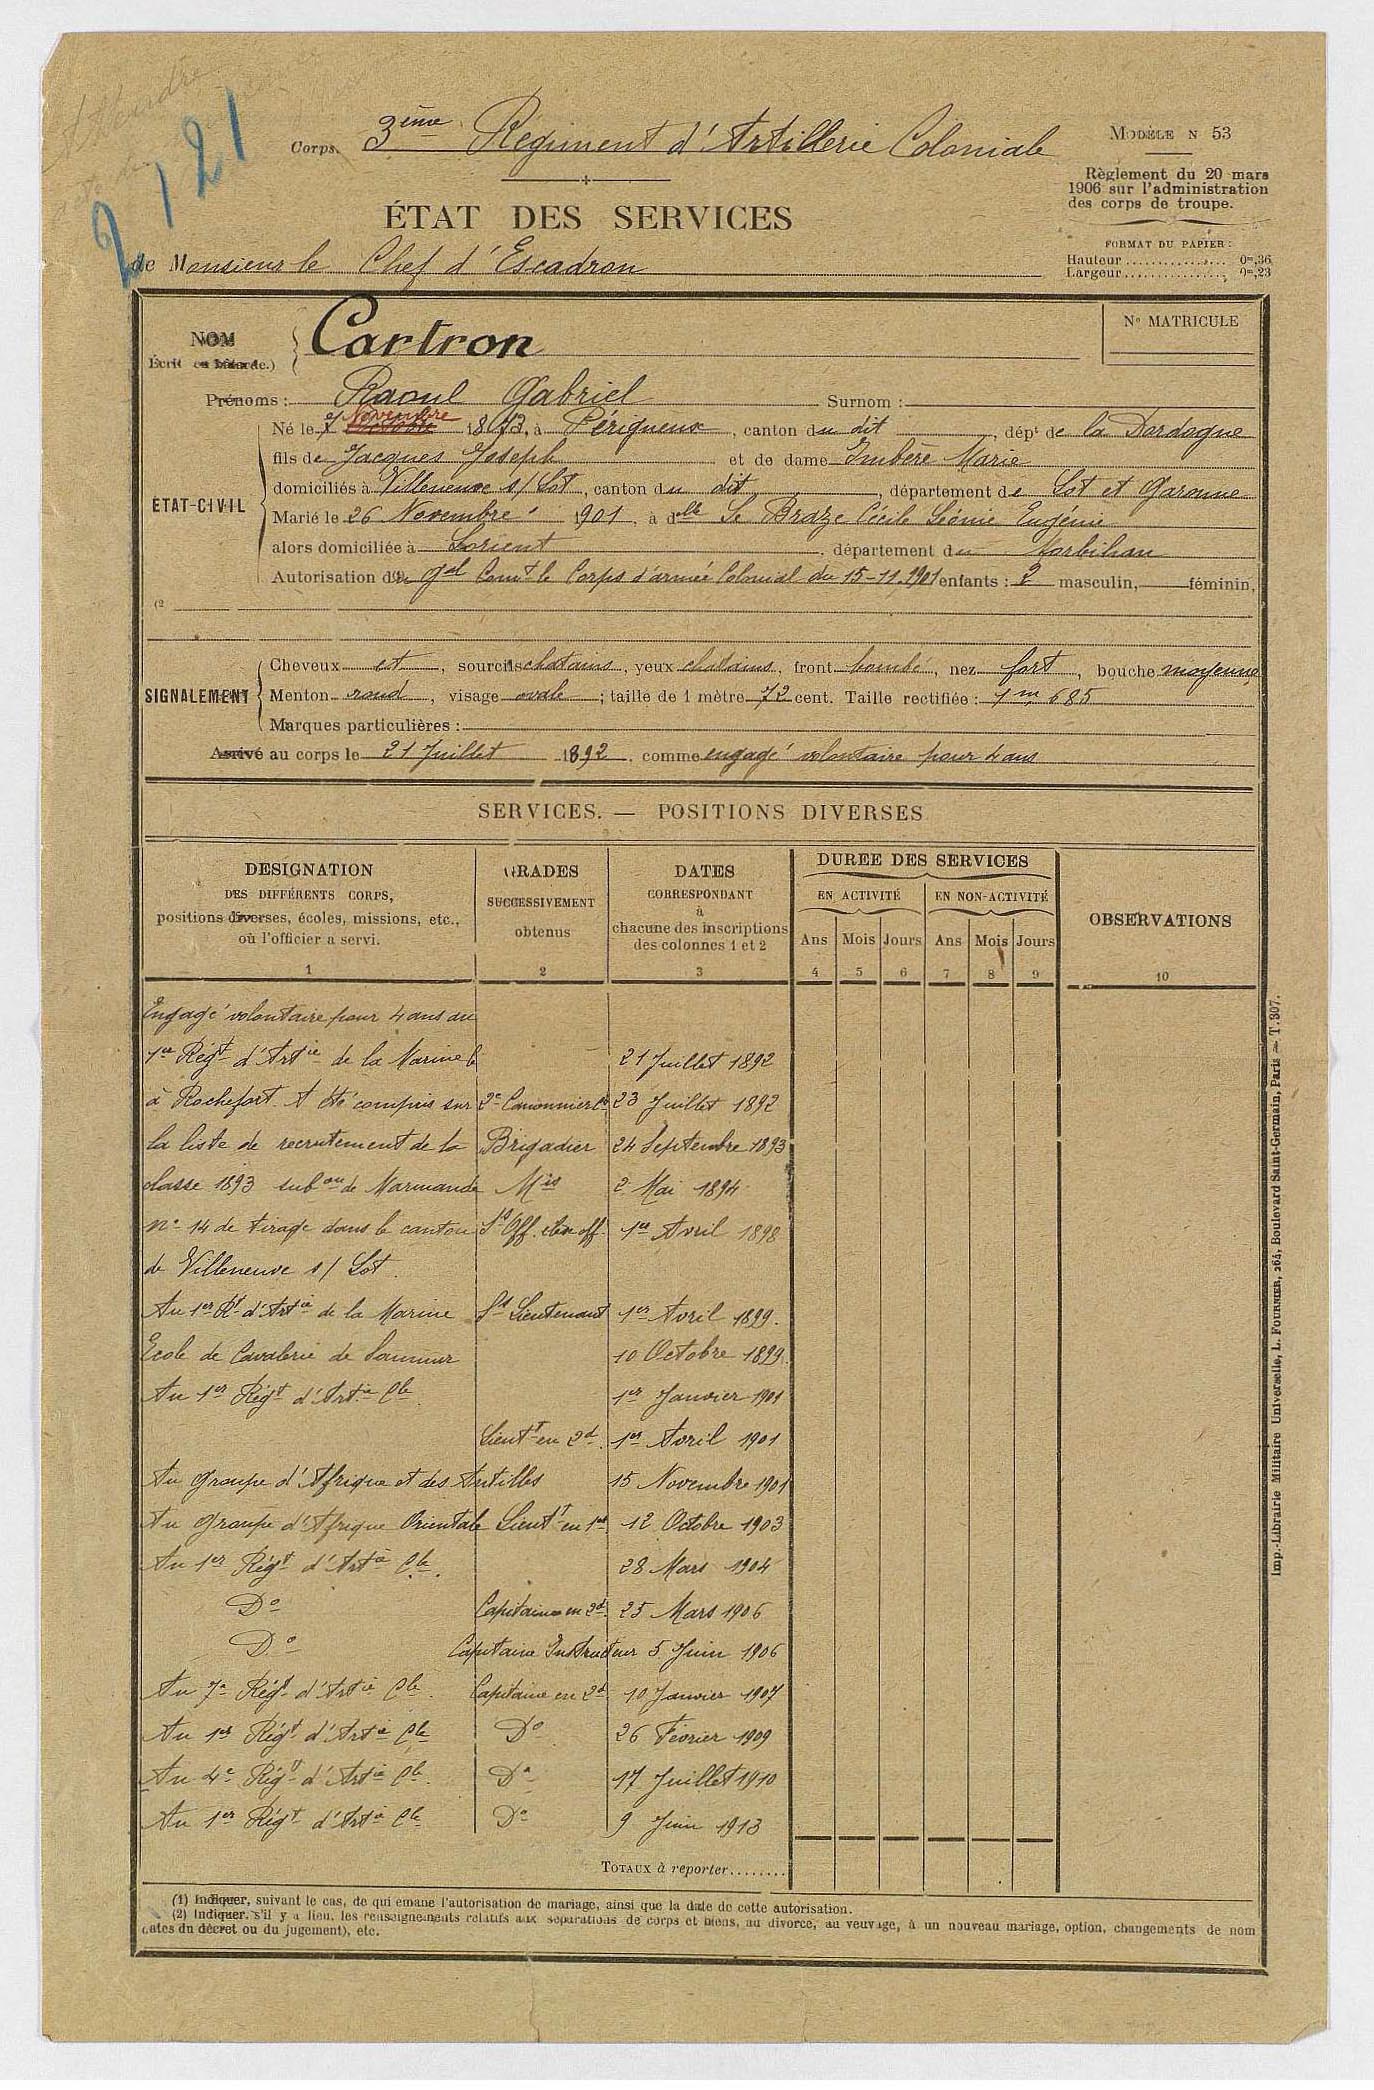 2121
Corps. 3ème Régiment d'Artillerie Coloniale
MODÈLE N 53
Règlement du 20 mars
1906 sur l'administration
des corps de troupe.
FORMAT DU PAPIER :
Hauteur .......... 0m,36
Largeur .......... 0m,23
ÉTAT DES SERVICES
de Monsieur le Chef d'Escadron
NOM
Écrit en bâtarde.)
Cartron
No MATRICULE
Prénoms : Raoul Gabriel Surnom :
ÉTAT-CIVIL
Né le 7 Novembre 1873, à Périgueux, canton du dit, dépt de la Dordogne
fils de Jacques Joseph et de dame Imbère Marie
domiciliés à Villeneuve s/ Lot, canton du dit, département de Lot et Garonne
Marié le 26 Novembre 1901 à dlle Le Braze Cécile Léonie Eugénie
alors domiciliée à Lorient, département du Morbihan
Autorisation du Gal Comt le Corps d'armée Colonial du 15-11-1901 enfants : 2 masculin, féminin,
(2
SIGNALEMENT
Cheveux et, sourcils chatains, yeux chatains, front bombé, nez fort, bouche moyenne
Menton rond, visage ovale ; taille de 1 mètre 72 cent. Taille rectifiée : 1m 685
Marques particulières :
Arrivé au corps le 21 Juillet 1892, comme engagé volontaire pour 4 ans
SERVICES. — POSITIONS DIVERSES
DESIGNATION
DES DIFFÉRENTS CORPS,
positions diverses, écoles, missions, etc.,
où l'officier a servi.
1
GRADES
SUCCESSIVEMENT
obtenus
2
DATES
CORRESPONDANT
à
chacune des inscriptions
des colonnes 1 et 2
3
DUREE DES SERVICES
EN ACTIVITÉ EN NON-ACTIVITÉ
Ans Mois Jours Ans Mois Jours
4 5 6 7 8 9
OBSERVATIONS
10
Engagé volontaire pour 4 ans au
1er Régt d'Artie de la Marine 21 Juillet 1892
à Rochefort. A été compris sur 2e Canonnier 23 Juillet 1892
la liste de recrutement de la Brigadier 24 Septembre 1893
classe 1893 subon de Marmande Mis 2 Mai 1894
no 14 de tirage dans le canton Ss Off. élève off. 1er Avril 1898
de Villeneuve s/ Lot.
Au 1er Rt d'Artie de la Marine Ss Lieutenant 1er Avril 1899.
Ecole de Cavalerie de Saumur 10 Octobre 1899.
Au 1er Régt d'Artie Cle 1er Janvier 1901
Lieutt en 2d. 1er Avril 1901
Au Groupe d'Afrique et des Antilles 15 Novembre 1901
Au Groupe d'Afrique Orientale Lieutt en 1er 12 Octobre 1903
Au 1er Régt d'Artie Cle. 28 Mars 1904
Do Capitaine en 2d. 25 Mars 1906
Do Capitaine Instructeur 5 Juin 1906
Au 7e Régt d'Artie Cle. Capitaine en 2d 10 Janvier 1907
Au 1er Régt d'Artie Cle Do 26 Février 1909
Au 4e Régt d'Artie Cle. Do 17 Juillet 1910
Au 1er Régt d'Artie Cle Do 9 Juin 1913
TOTAUX à reporter........
(1) Indiquer, suivant le cas, de qui emane l'autorisation de mariage, ainsi que la date de cette autorisation.
(2) Indiquer, s'il y a lieu, les renseignements relatifs aux séparations de corps et biens, au divorce, au veuvage, à un nouveau mariage, option, changements de nom
(dates du décret ou du jugement), etc.
Imp.-Librairie Militaire Universelle, L. FOURNIER, 264, Boulevard Saint-Germain, Paris — T. 307.